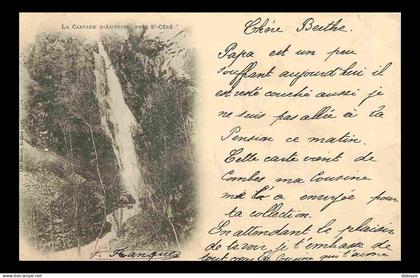 LA CASCADE D'AUTOIRE, PRÈS ST-CÉRÉ
Chère Berthe
Papa est un peu
souffrant aujourd'hui il
est resté couché aussi je
ne suis pas allée à la
Pension ce matin.
Cette carte vient de
Combes ma Cousine
me l'a envoyée pour
ta collection.
En attendant le plaisir
de te voir, je t'embrasse de
tout mon qui t'aime